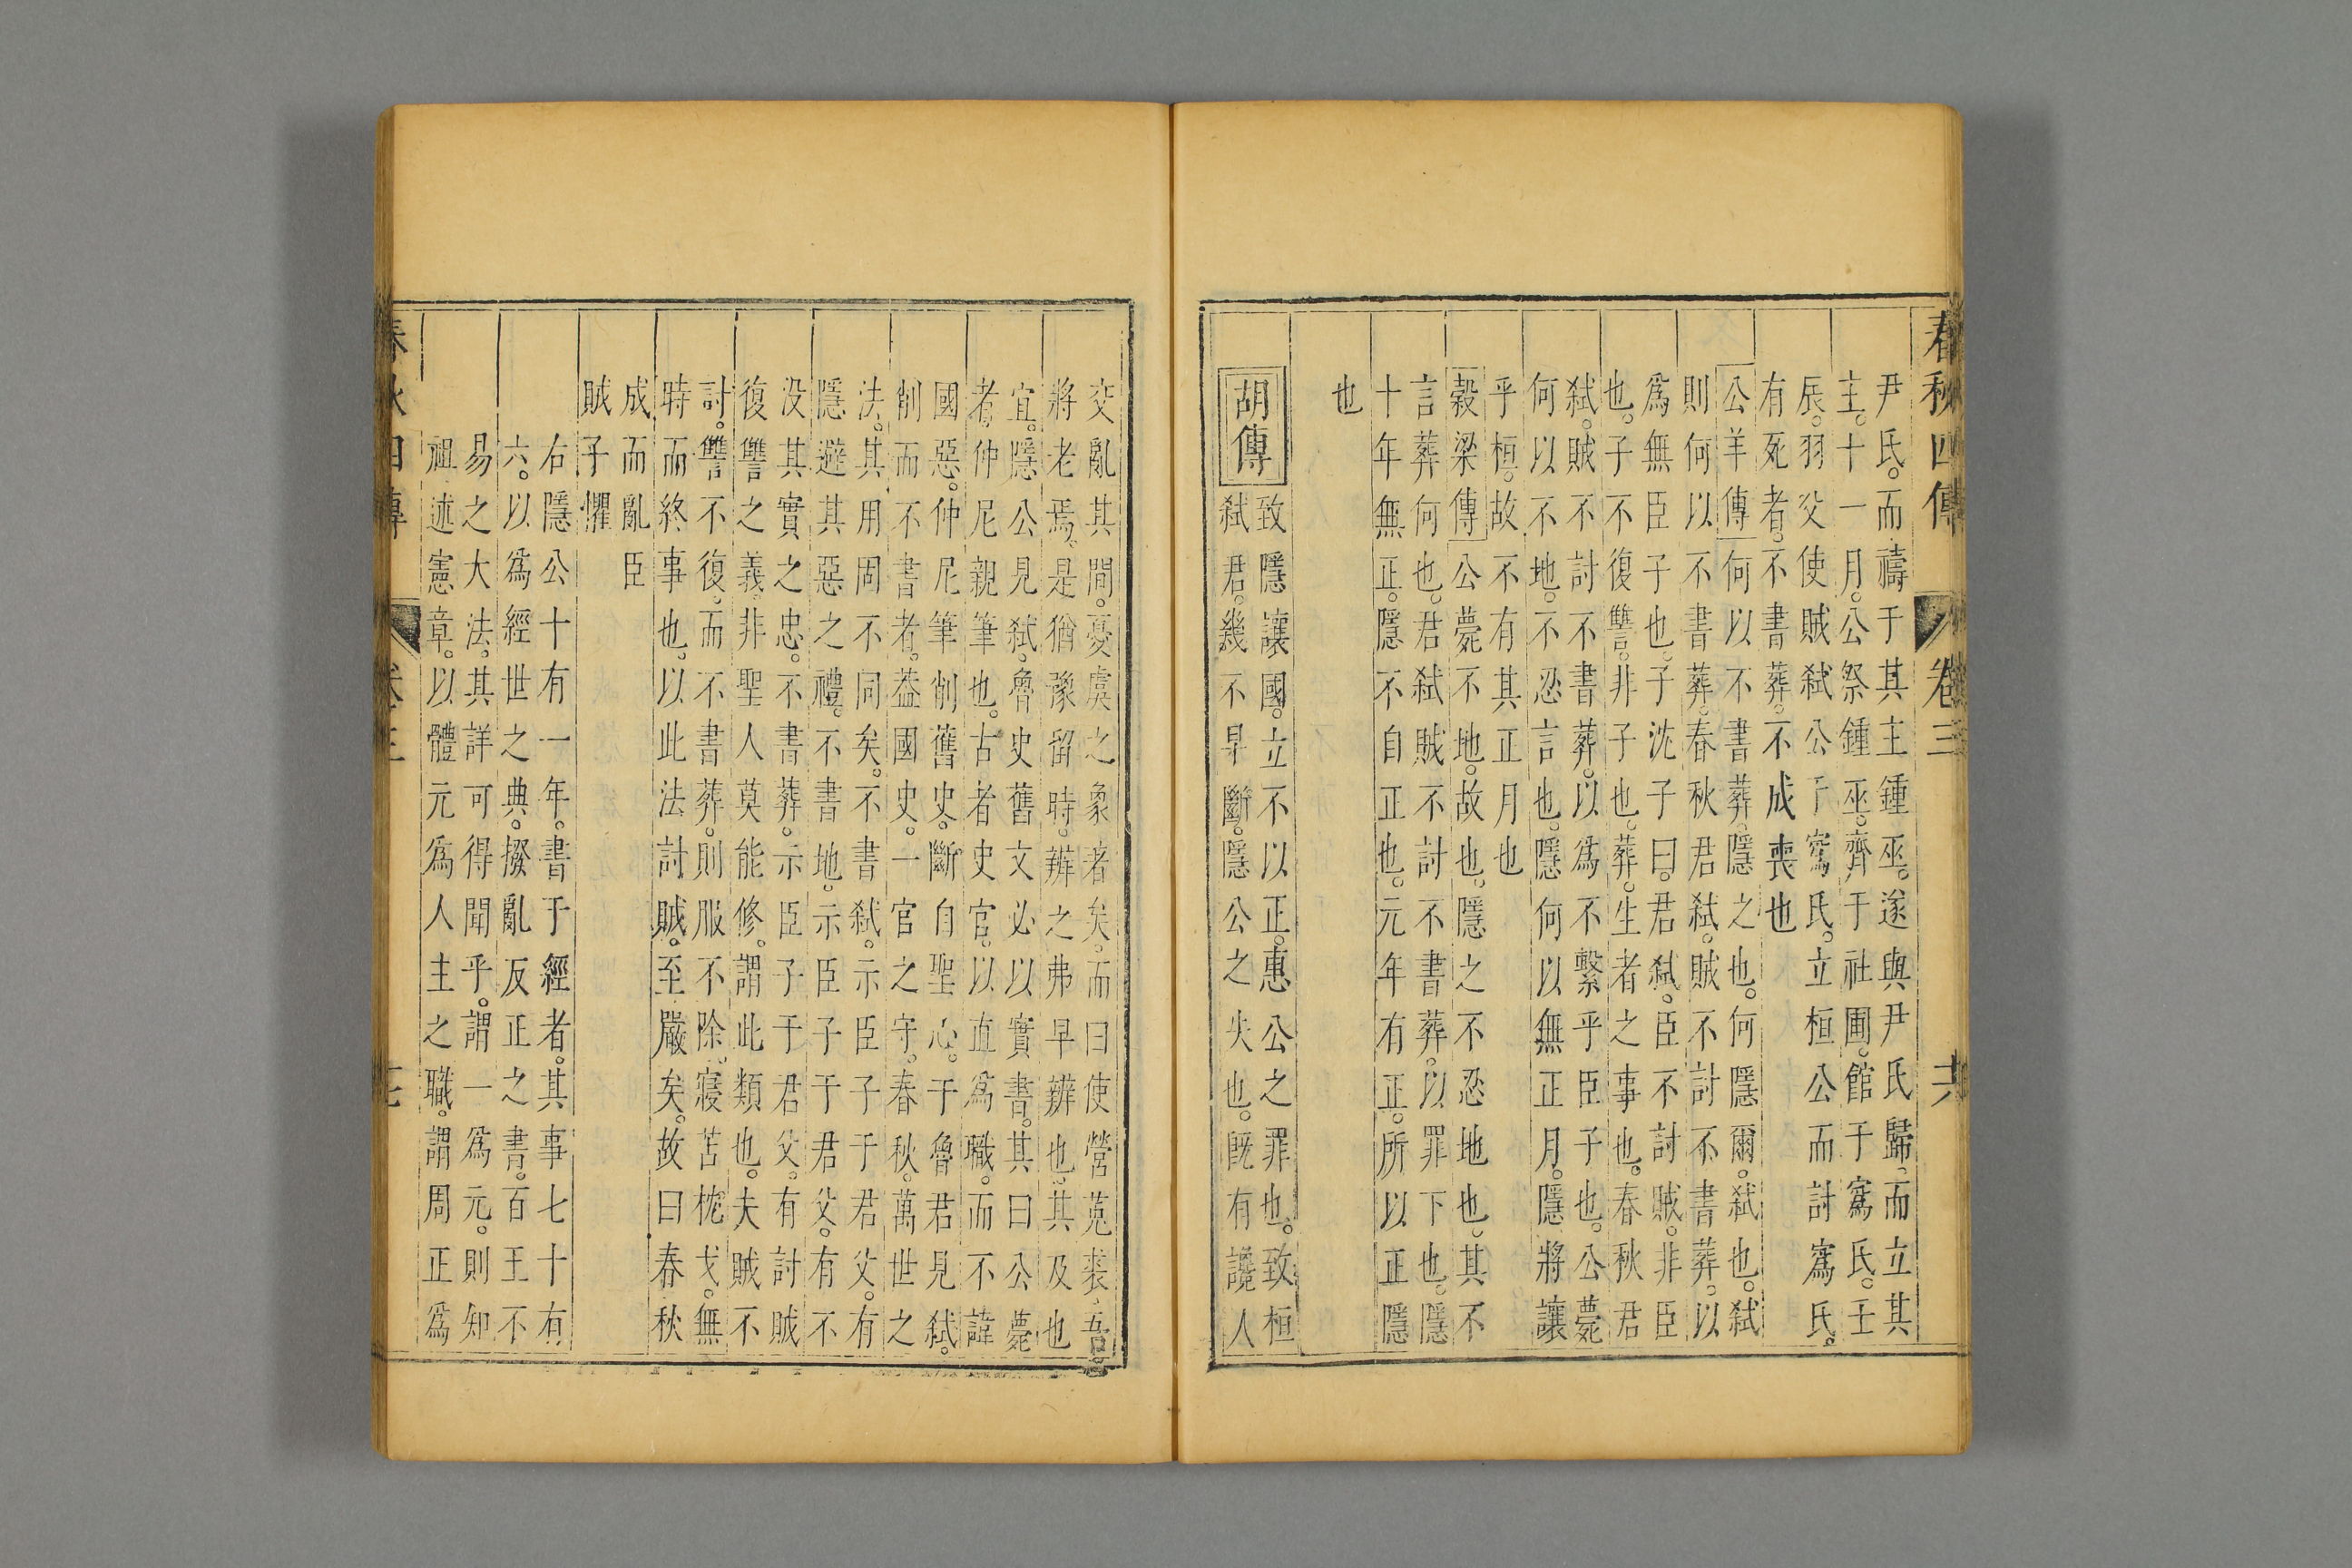 春秋四傳 卷三
尹氏。而禱于其主鍾巫。遂與尹氏歸。而立其
主。十一月。公祭鍾巫。齊于社圃。館于寪氏。壬
辰。羽父使賊弒公于寪氏。立桓公而討寪氏。
有死者。不書葬。不成喪也
公羊傳 何以不書葬。隱之也。何隱爾。弒也。弒
則何以不書葬。春秋君弒。賊不討不書葬。以
爲無臣子也。子沈子曰。君弒。臣不討賊。非臣
也。子不復讐。非子也。葬。生者之事也。春秋君
弒。賊不討不書葬。以爲不繫乎臣子也。公薨
何以不地。不忍言也。隱何以無正月。隱將讓
乎桓。故不有其正月也
穀梁傳 公薨不地。故也。隱之不忍地也。其不
言葬何也。君弒賊不討不書葬。以罪下也。隱
十年無正。隱不自正也。元年有正。所以正隱
也
胡傳 致隱讓國。立不以正。惠公之罪也。致桓
弒君。幾不早斷。隱公之失也。既有讒人
交亂其間。憂虞之象著矣。而曰使營菟裘。吾
將老焉。是猶豫留時。辨之弗早辨也。其及也
宜。隱公見弒。魯史舊文必以實書。其曰公薨
者。仲尼親筆也。古者史官。以直爲職。而不諱
國惡。仲尼筆削舊史。斷自聖心。于魯君見弒。
削而不書者。葢國史。一官之守。春秋。萬世之
法。其用固不同矣。不書弒。示臣子于君父。有
隱避其惡之禮。不書地。示臣子于君父。有不
沒其實之忠。不書葬。示臣子于君父。有討賊
復讐之義。非聖人莫能修。謂此類也。夫賊不
討。讐不復。而不書葬。則服不除。寢苫枕戈。無
時而終事也。以此法討賊。至嚴矣。故曰春秋
成而亂臣
賊子懼
右隱公十有一年。書于經者。其事七十有
六。以爲經世之典。撥亂反正之書。百王不
易之大法。其詳可得聞乎。謂一爲元。則知
祖述憲章。以體元爲人主之職。謂周正爲